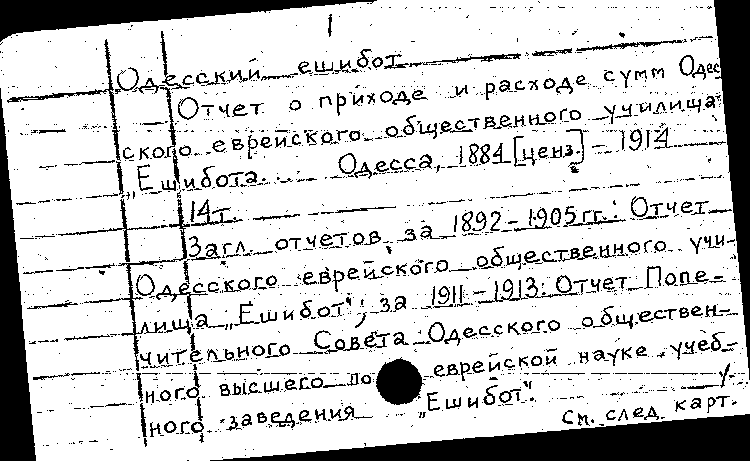 Одесский ешибот
Отчет о приходе и расходе сумм Одес
ского еврейского общественного училища
„Ешибота.... Одесса, 1884 [ценз.] – 1914
14т.
Загл. отчетов за 1892–1905 гг.: Отчет
Одесского еврейского общественного учи-
лища „Ешибот"; за 1911–1913: Отчет Попе-
чительного Совета Одесского обществен-
ного высшего по еврейской науке учеб-
ного заведения „Ешибот".
См. след. карт.